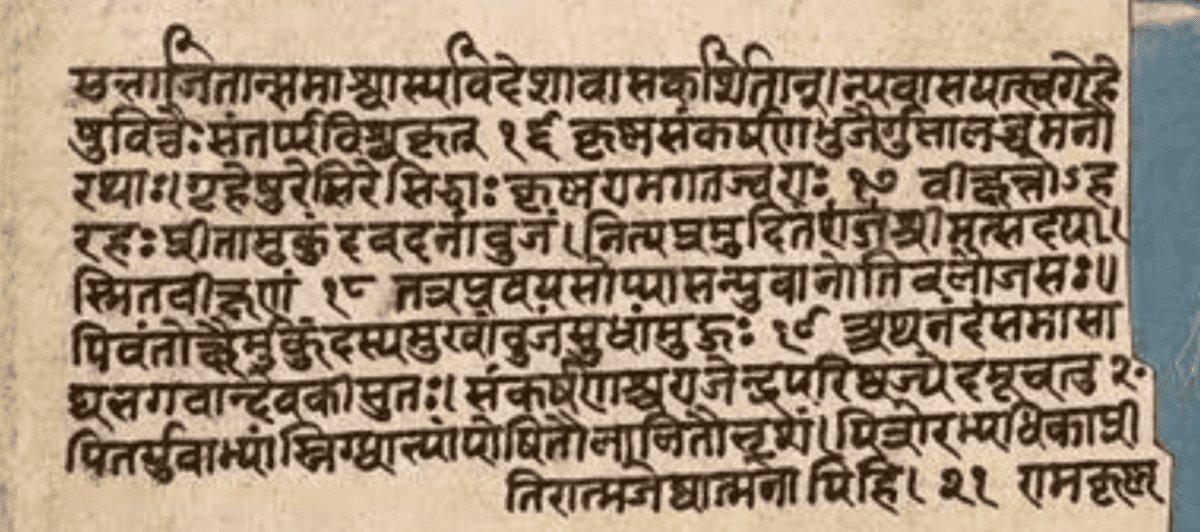 सभाजितान्समाश्वास्यविदेशावासकर्शितान्।न्यवासयत्स्वगेहे
षुवित्तैःसंतर्प्यविश्वकृत् १६ कृष्णसंकर्षणभुजैर्गुप्तालब्धमनो
रथाः।गृहेषुरेमिरेसिद्धाः कृष्णरामगतज्वराः १७ वीक्षन्तोऽह
रहः प्रीतामुकुंदवदनांबुजं।नित्यप्रमुदितं श्रीमत्सदया।
स्मितवीक्षणं १८ तत्रप्रवयसोप्यासन्युवानोतिबलौजसः॥
पिबंतोक्षैर्मुकुंदस्यमुखांबुजसुधांमुहुः १९ अथनंदंसमासा
द्यभगवान्देवकीसुतः।संकर्षणश्चराजेन्द्रपरिष्वज्येदमूचतु २०
पितर्युवाभ्यांस्निग्धाभ्यांपोषितौलालितौभृशं।पित्रोरभ्यधिकाप्री
तिरात्मजेष्वात्मनोपिहि। २१ रामकृष्ण